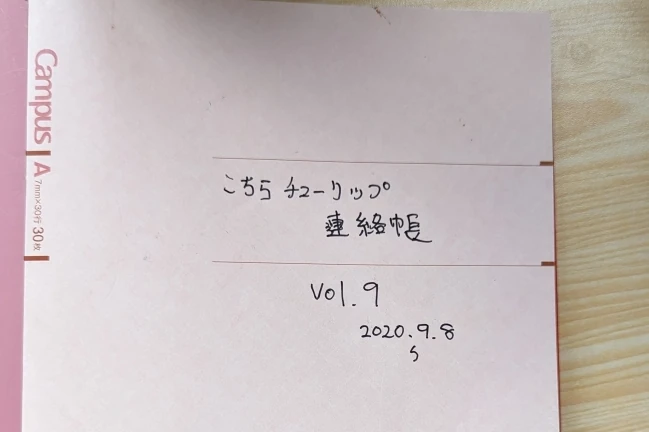 Campus
A 7mm×30行 30枚
こちらチューリップ
連絡帳
Vol.9
2020.9.8
~